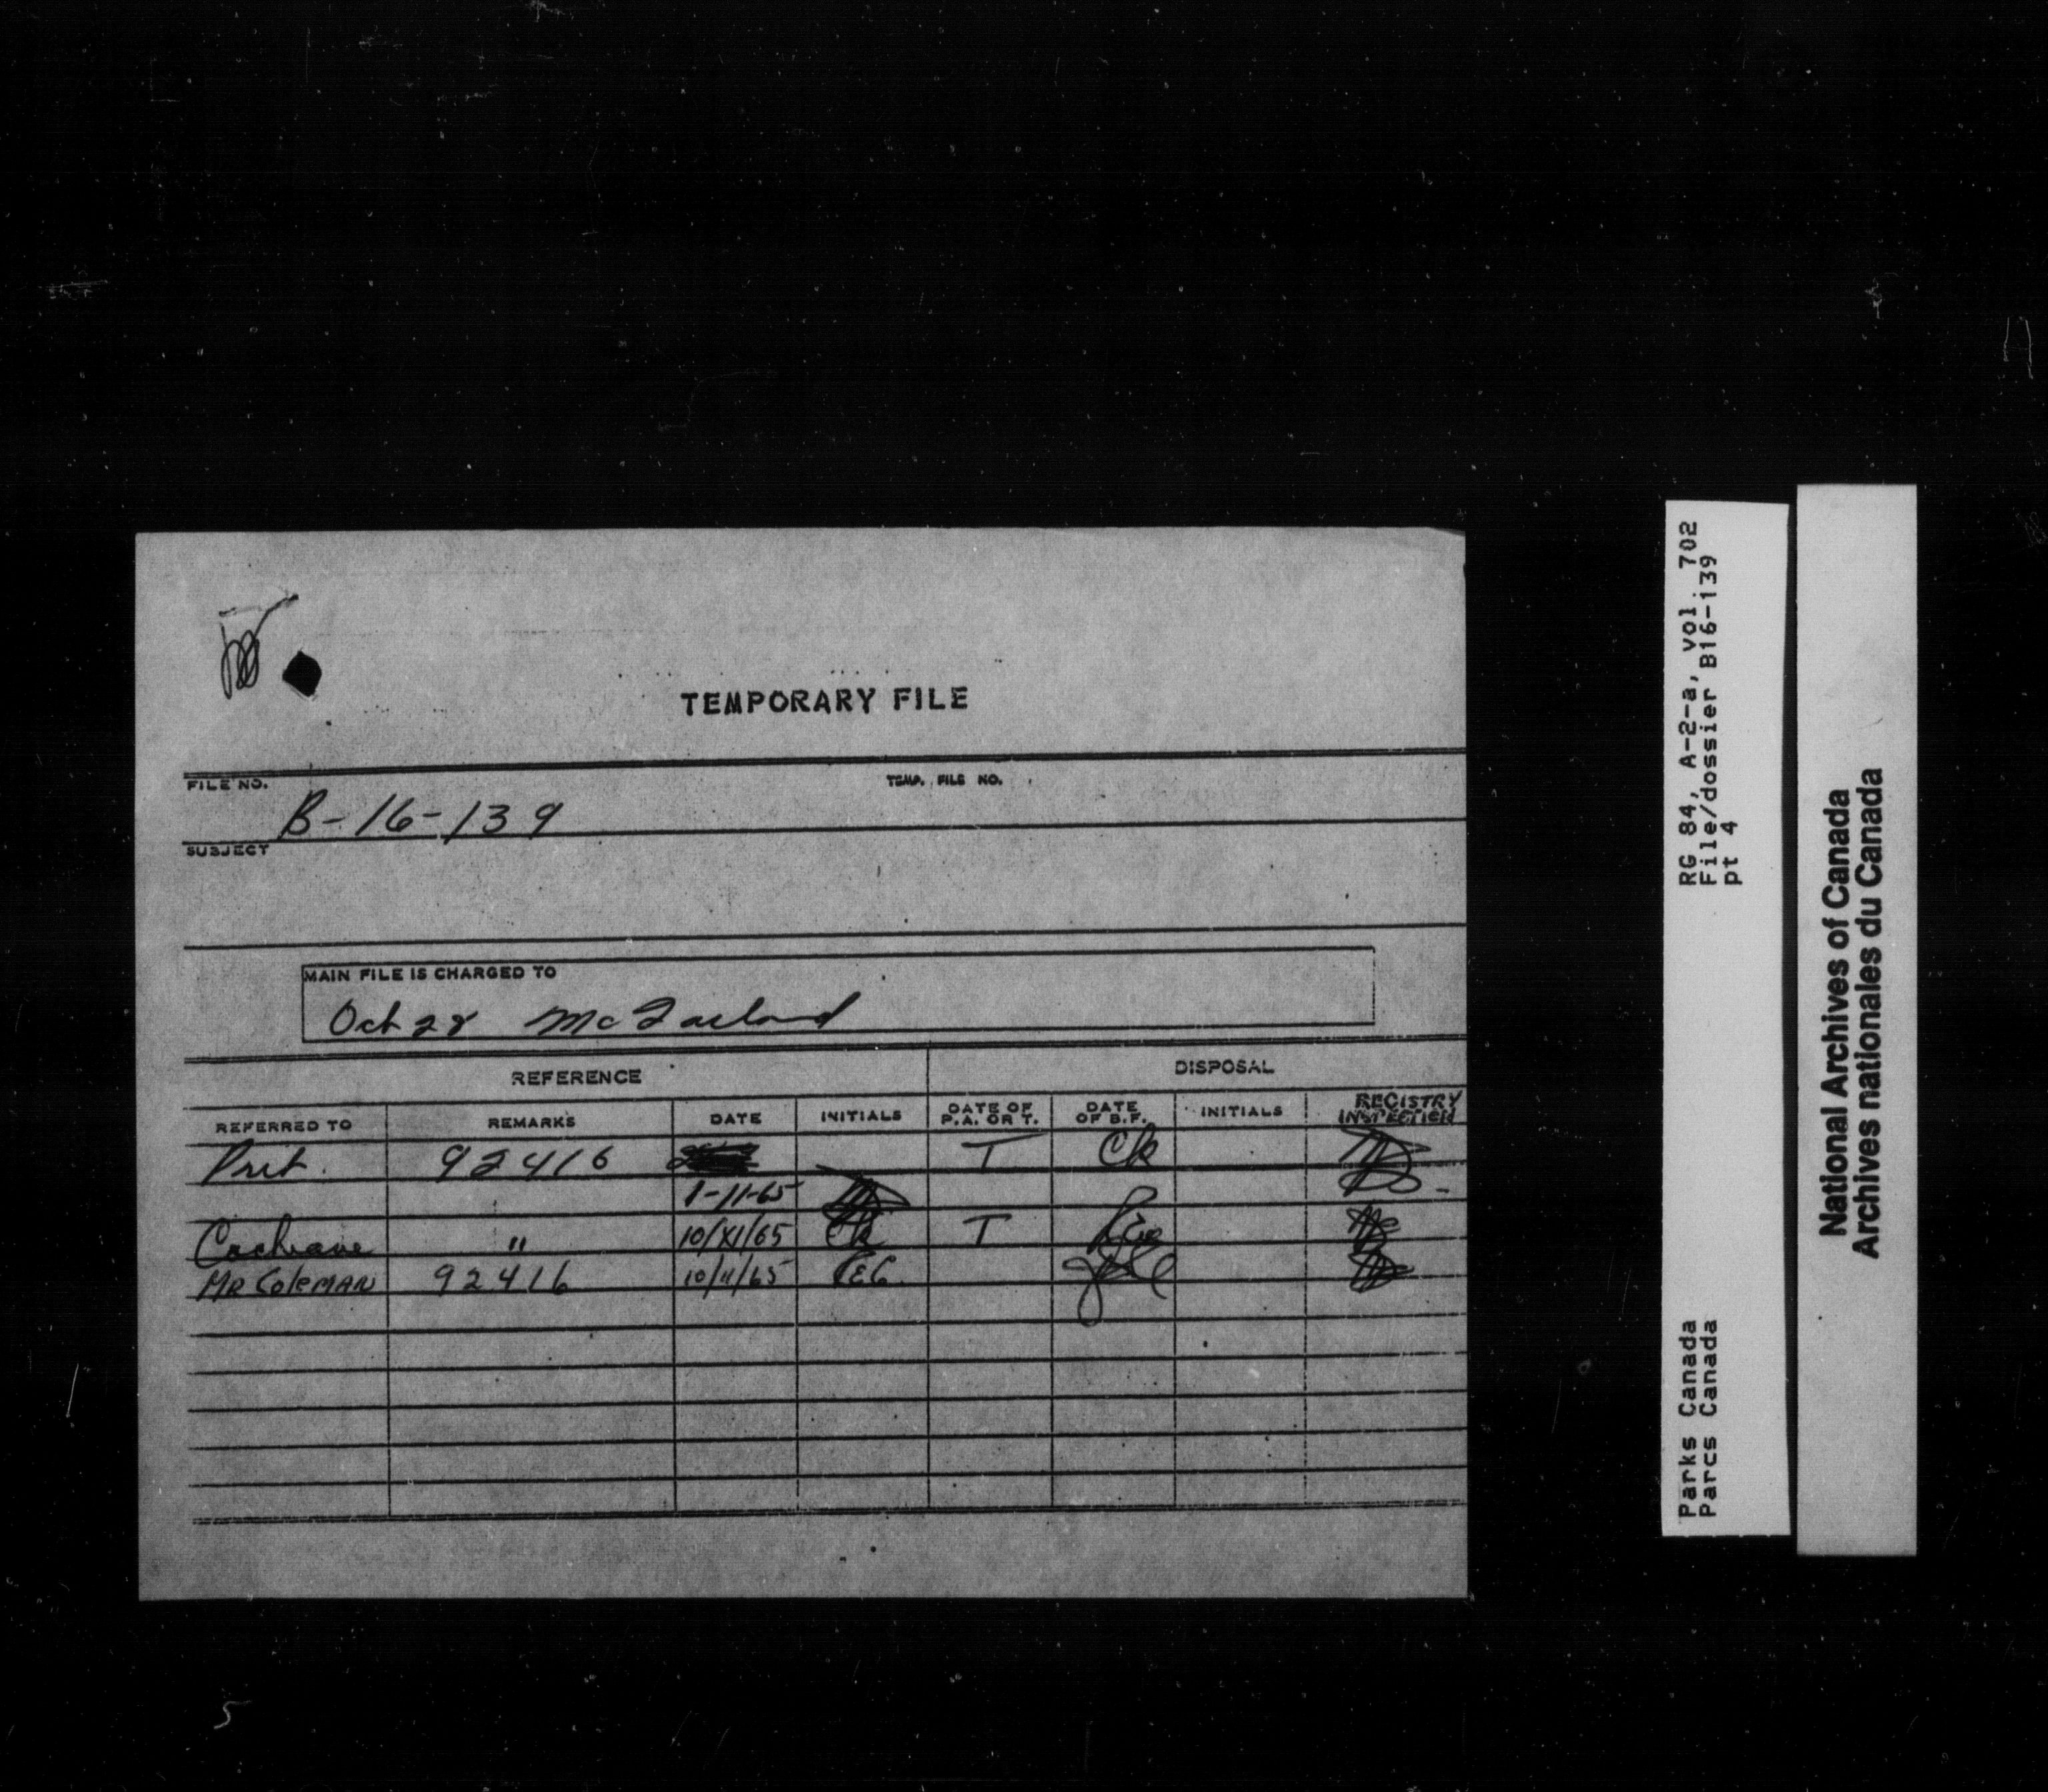 TEMPORARY FILE
FILE NO. TEMP. FILE NO.
B-16-139
SUBJECT
MAIN FILE IS CHARGED TO
Oct 28 McFarland
REFERENCE DISPOSAL
REFERRED TO REMARKS DATE INITIALS DATE OF P.A. OR T. DATE OF B.F. INITIALS REGISTRY INSPECTION
92416 T Ck
1-11-65
Cochrane " 10/XI/65 Ck T
MR COLEMAN 92416 10/11/65
5
RG 84, A-2-a, vol. 702
File/dossier B16-139
pt 4
Parks Canada
Parcs Canada
National Archives of Canada
Archives nationales du Canada